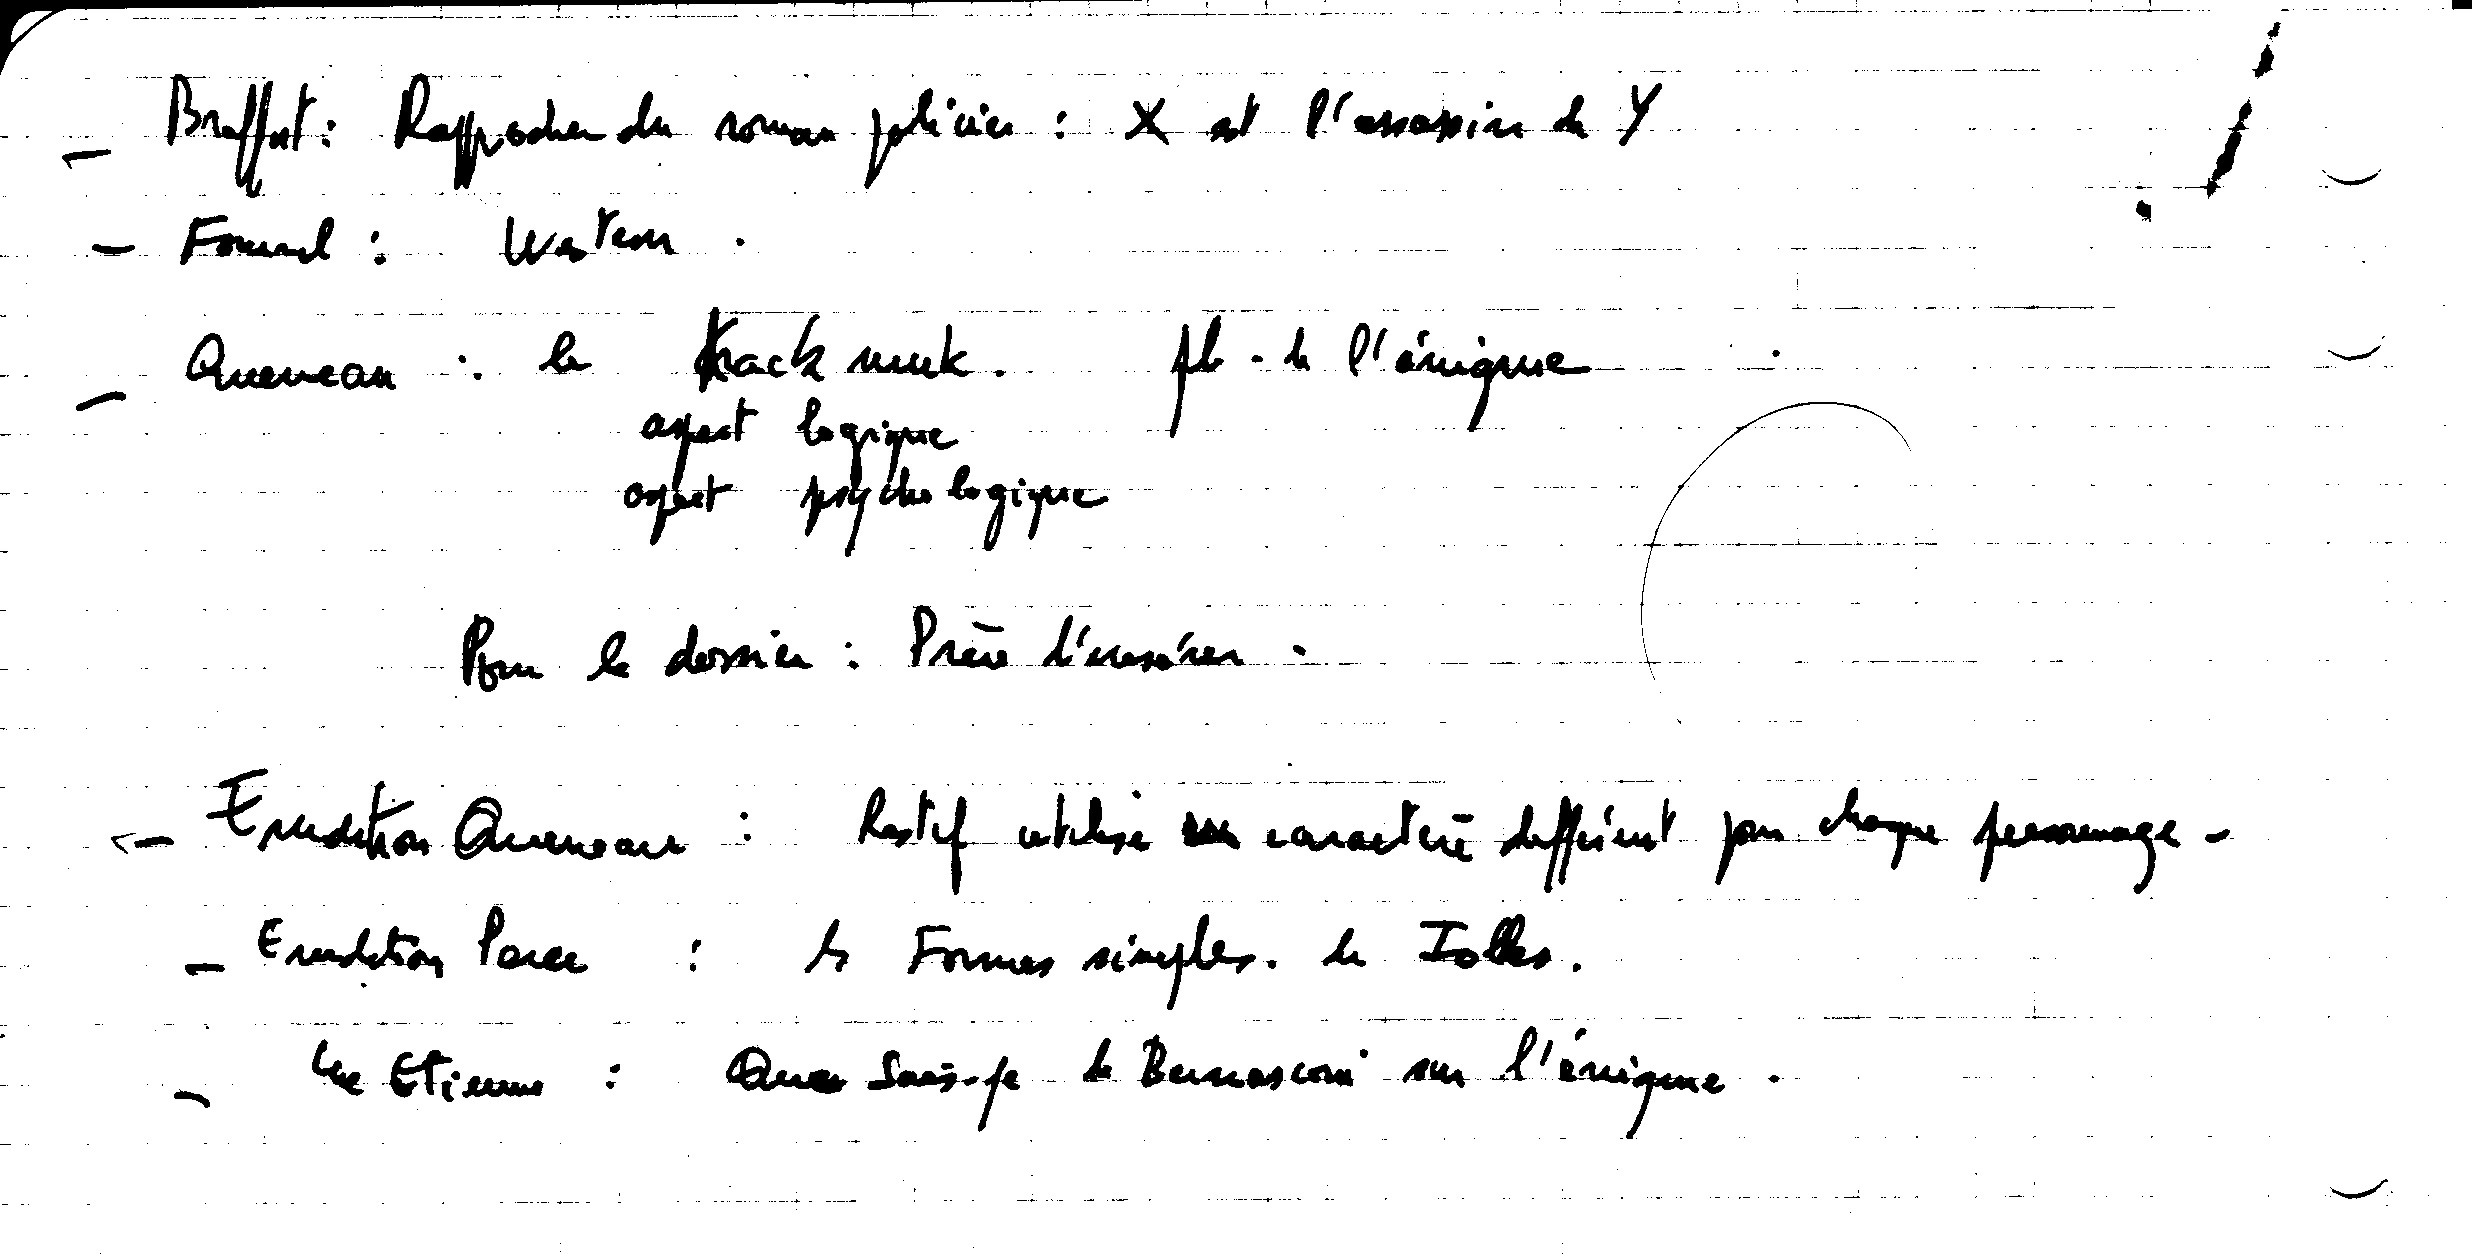 - Braffort : Rapprocher du roman policier : X est l'assassin de Y
- Fournel : Western .
- Queneau : le Knack nuck. pb. de l'énigme
aspect logique
aspect psychologique
Pour le dossier : Prière d'insérer .
- Erudition Queneau : Restif utilise un caractère différent pour chaque personnage -
- Erudition Perec : les Formes simples. de Jolles.
- Luc Etienne : Que Sais-je de Bernasconi sur l'énigme .